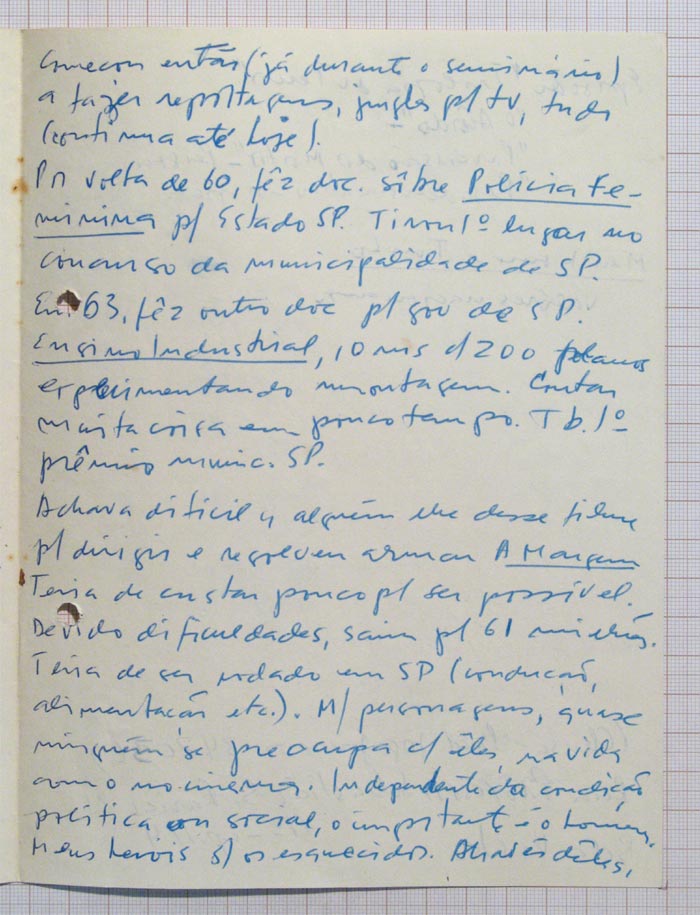 Começou então (já durante o seminário)
a fazer reportagens, jingles p/ tv, tudo
(continua até hoje).
Por volta de 60, fêz doc. sôbre Polícia Fe-
minina p/ Estado SP. Tirou 1º lugar no
concurso da municipalidade de SP.
Em 63, fêz outro doc p/ gov de SP.
Ensino Industrial, 10 ms c/ 200 planos
experimentando montagem. Contar
muita coisa em pouco tempo. Tb. 1º
prêmio munic. SP.
Achava difícil q alguém lhe desse filme
p/ dirigir e resolveu armar A Margem
Teria de custar pouco p/ ser possível.
Devido dificuldades, saiu p/ 61 milhões.
Teria de ser rodado em SP (condução,
alimentação etc.). M/ personagens, quase
ninguém se preocupa c/ êles, na vida
como no cinema. Independente da condição
política ou social, o importante é o homem.
Meus heróis s/ os esquecidos. Através dêles,